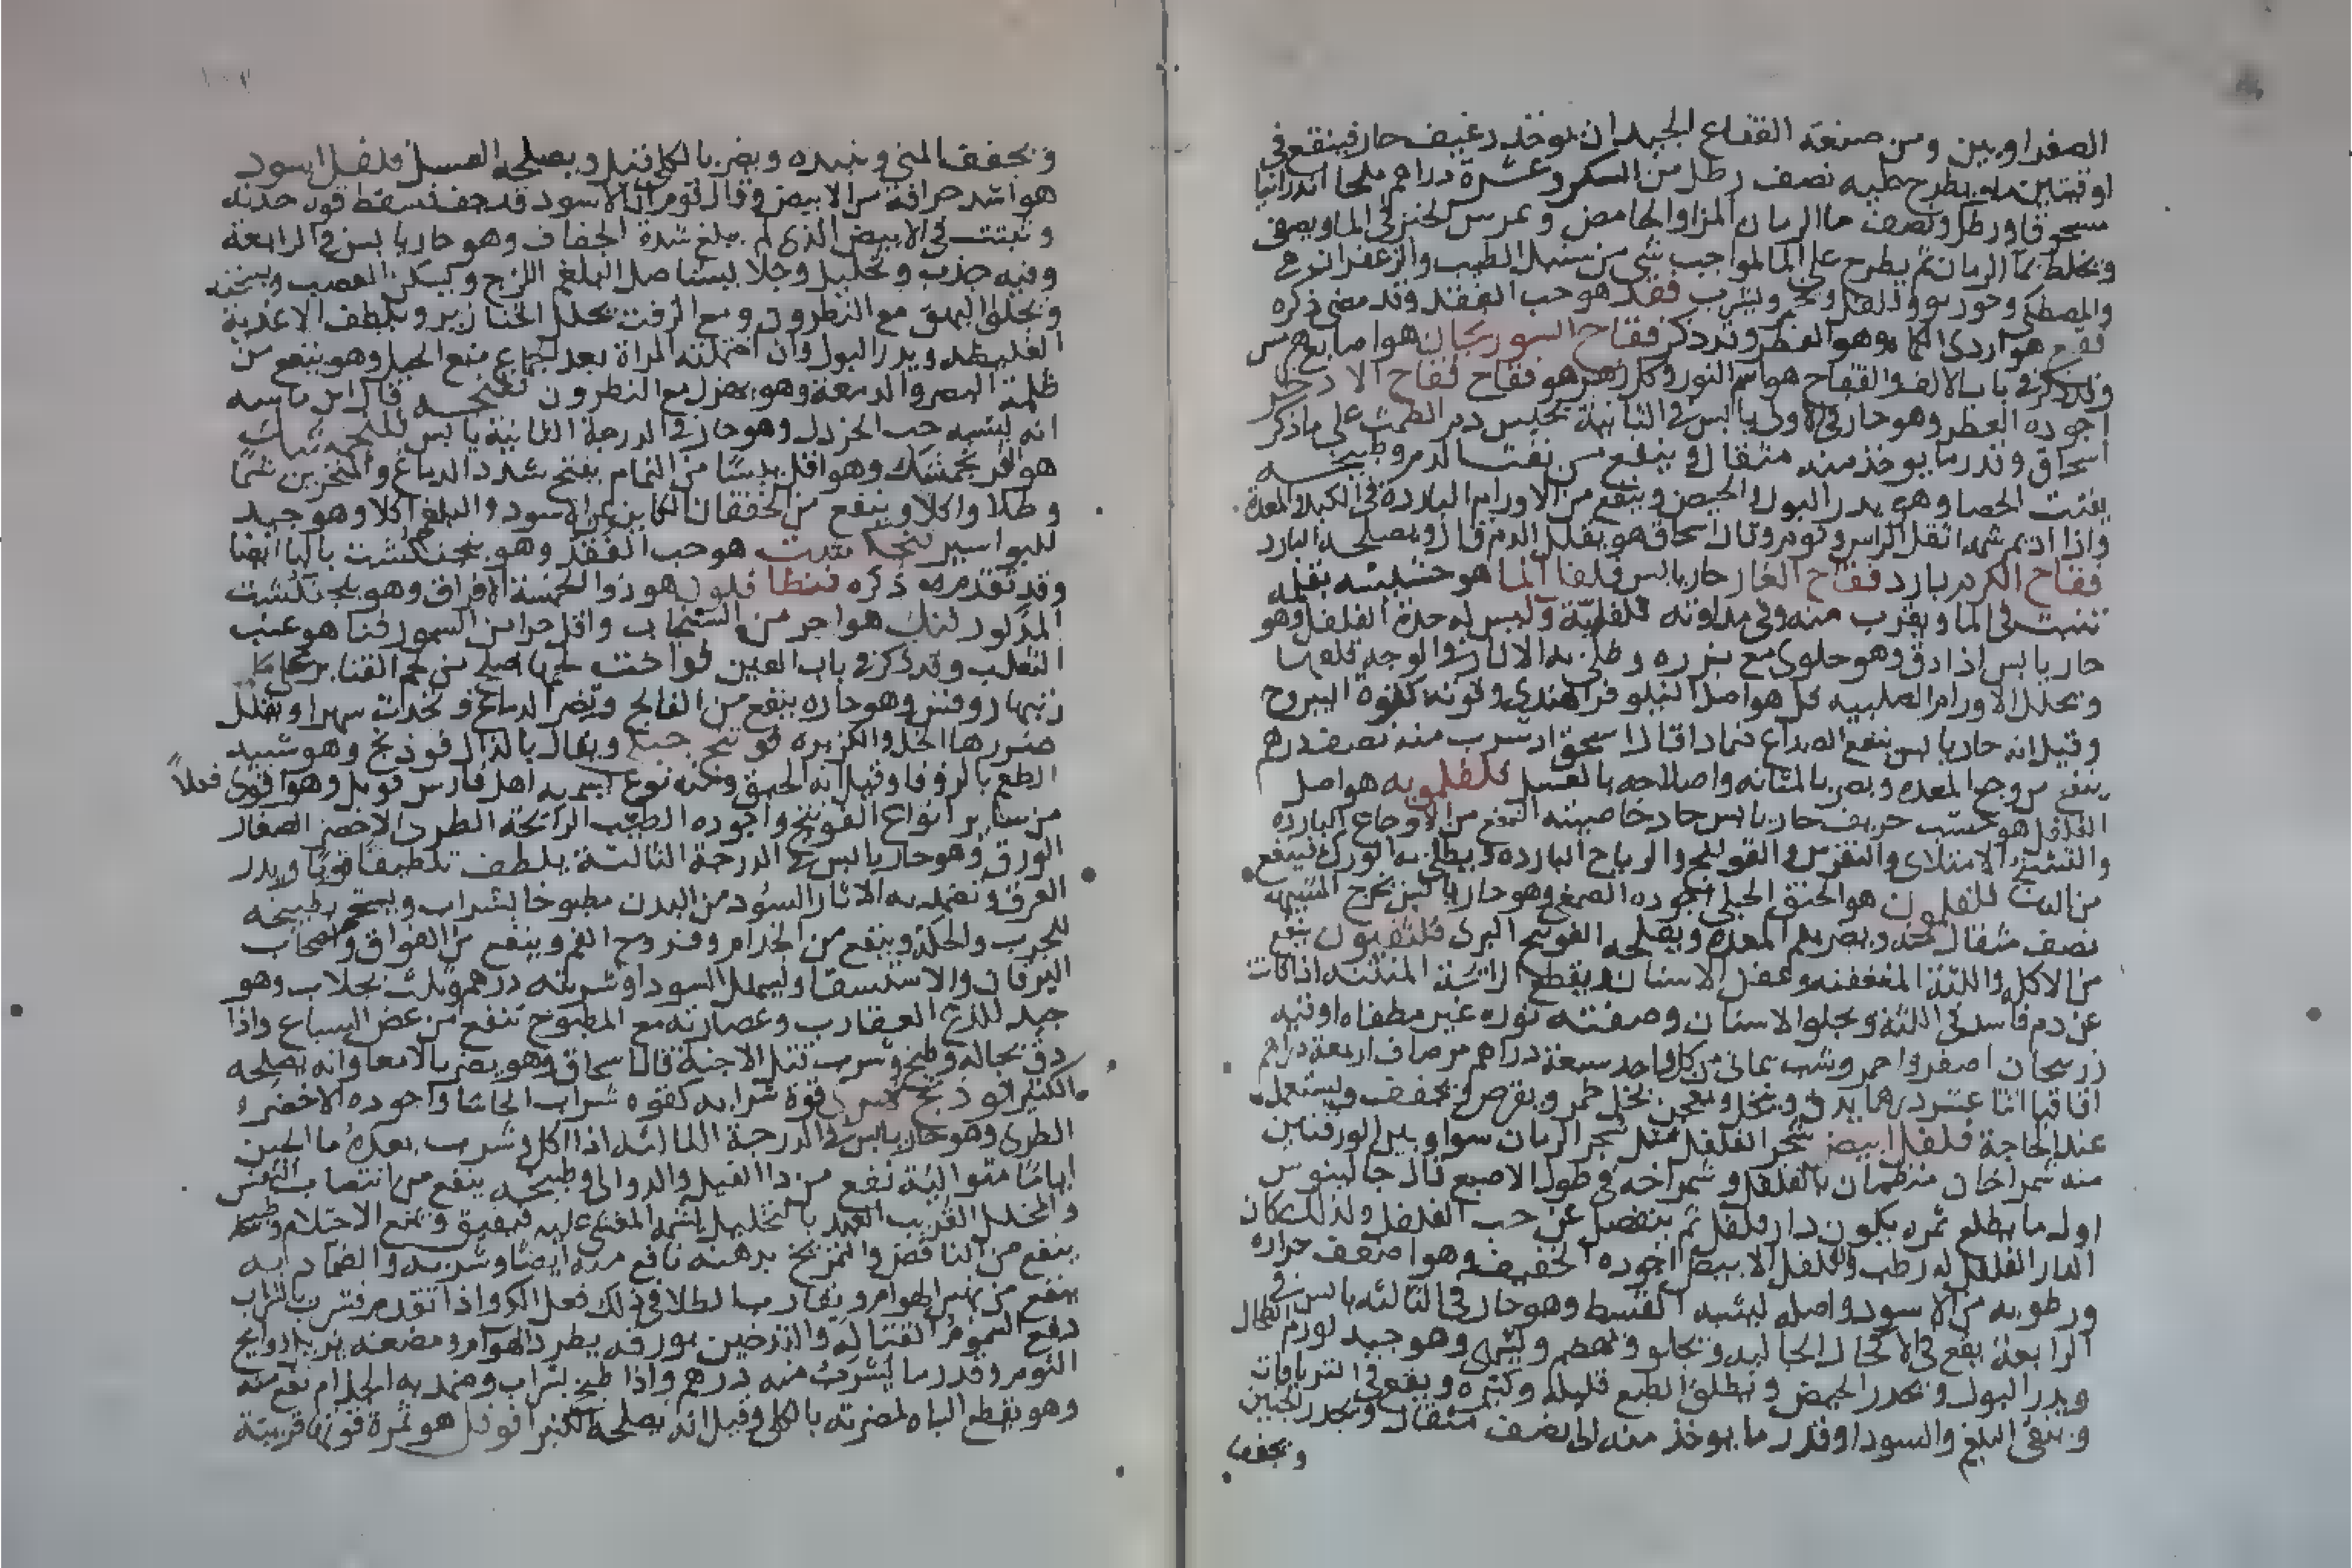 الصفراوبين ومن صنعة الفقاع الجيد ان يوخذ رغيف حار فينقع في
اوقيتين ما ويطرح عليه نصف رطل من السكر وعشرة دراهم ملحا اندرانيا
مسحوقا ورطل ونصف ما الرمان المز او الحامض وعرس الخبز في الما ويصفى
ويخلط بما الرمان ثم يطرح على الما لمواجب شي من سنبل الطيب والزعفران
والمصطكى وجوز بوو وتشرب فقد هو حب الفقد وقد مضى ذكره
فقع هو اردى الكماه وهو الفطر وقد ذكر فقاح السورنجان هو اصابع هرمس
وقد ذكر في باب الالف والفقاح هو اسم النور وكل زهر هو فقاح فقاح الاذخر
اجوده العطر وهو حار في الاولى يابس في الثانية يحبس دم الطمث على ما ذكر
اسحاق وقدر ما يوخذ منه مثقال وينفع من نفث الدم وطبيخه
يفتت الحصا وهو يدر البول والحيض وينفع من الاورام الباردة في الكبد والمعدة
واذا اديم شمه اثقل الراس ونوم وقال اسحاق هو يقلل الدم قال ويصلحه البارد
فقاح الكرم بارد فقاح الغار حار يابس فلفل الما هو حشيشه بقله
تنبت في الما ويقرب منه وفي مذاوته فلفلية وليس له حدة الفلفل وهو
حار يابس اذا دق وهو حلوى مع بزره وطلى به الاثار في الوجه قلعها
ويحلل الاورام الصلبيه فل هو اصل النيلوفر الهندي وقوته كقوة اليبروح
وقيل انه حار يابس ينفع الصداع ضمادا قال اسحق اذا شرب منه نصف درهم
ينفع من وجع المعده ويضر بالمثانه واصلاحه بالعسل فلفلمويه هو اصل
الفلفل هو خشب حريف حار يابس حاد خاصيته النفع من الاوجاع البارده
والتشنج الامتلاى والنقرس والقولنج والرياح البارده ويطلى به الورك لينفع
هو الحبق الجبلي اجوده الصمغ وهو حار يابس يخرج المشيمه
نصف مثقال منه ويضر بفم المعدة ويصلحه الفوتنج البرى ينفع
من الاكله واللثة المتعفنه وعضل الاسنان ويقطع الرائحة المنتنه اذا كانت
عن دم فاسد في اللثة ويجلوا الاسنان وصفته نوره غير مطفاه اوقيه
زرنيخان اصفر واحمر وشب يماني من كل واحد سبعة دراهم مرصاف اربعة دراهم
اقاقيا اثنا عشر درهما يدق وينخل ويعجن بخل خمر ويقرص ويجفف ويستعمل
عند الحاجة فلفل ابيض شجر الفلفل مثل شجر الرمان سوا وبين الورقتين
منه شمراخان منظمان بالفلفل وشمراخه في طول الاصبع قال جالينوس
اول ما يطلع ثمره يكون دار فلفل ثم ينفصل عن حب الفلفل ولذلك كان
الدار الفلفل له رطب والفلفل الابيض اجوده الخفيف وهو اضعف حراره
ورطوبه من الاسود واصله يشبه القسط وهو حار في الثالثه يابس في
الرابعة يقع في الاكحال الجالية ويجلو ويهضم ويشهى وهو جيد لورم الطحال
ويدر البول ويحدر الحيض ويطلق الطبع قليله وكثيره ويقع في الترياقات
وينقى البلغم والسودا وقدر ما يوخذ منه الى نصف مثقال ويحدر الجنين
ويجفف
ويجفف المنى ويبدده ويضر بالكلى ويصلحه العسل فلفل اسود
هو اشد حرافة من الابيض وقال قوم ان الاسود قد جف فسقط قوة حدته
وتثبت في الابيض الذى لم يبلغ شدة الجفاف وهو حار يابس في الرابعة
وفيه جذب وتحليل وجلا يستاصل البلغم اللزج ويسكن العصب ويسخنه
ويجلوا البهق مع النطرون ومع الزفت يحلل الخنازير ويلطف الاغذية
الغليظه ويدر البول وان احتملته المراة بعد الجماع منع الحبل وهو ينفع من
ظلمة البصر والدمعة وهو يعزل مع النطرون قال ابن ماسه
انه يشبه حب الخردل وهو حار في الدرجة الثانية يابس
هو افرنجمشك وهو اقل يبسا من النمام يفتح سدد الدماغ والمنخرين شما
وطلا واكلا وينفع من الخفقان الكاين عن السودا والبلغم اكلا وهو جيد
للبواسير فنجنكشت هو حب الفقد وهو بنجنكشت بالبا ايضا
وقد تقدم ذكره فنطافلون هو ذو الخمسة الاوراق وهو بنجنكشت
المذكور فنك هو احر من السنجاب واقل حرا من السمور فنا هو عنب
الثعلب وقد ذكر في باب العين فواخت لحمها اصلح من لحم القنابر
وهو حاره ينفع من الفالج ويضر الدماغ ويحدث سهرا ويقلل
ضررها الخل والكزبره فوتنج جبلي ويقال بالذال فوذنج وهو شبيه
الطعم بالزوفا وقيل انه الحبق ومنه نوع يسميه اهل فارس وهو اقوى فعلا
من ساير انواع الفوتنج واجوده الطيب الرائحة الطرى الاخضر الصغار
الورق وهو حار يابس في الدرجة الثالثة يلطف تلطيفا قويا ويدر
العرق وتضمد به الاثار السود من البدن مطبوخا بشراب ويستحم بطبيخه
للجرب والحكة وينفع من الجذام وقروح الفم وينفع من الفواق واصحاب
اليرقان والاستسقا ويسهل السودا وشربته درهم وثلث بجلاب وهو
جيد للدغ العقارب وعصارته مع المطبوخ تنفع من عض السباع واذا
دق بحاله وطبخ وشرب قتل الاجنة قال اسحاق وهو يضر بالامعا وانه يصلحه
الكثيرا فوذنج قوة شرابه كقوه شراب الحاشا واجوده الاخضر
الطرى وهو حار يابس في الدرجة الثالثه اذا اكل وشرب بعده ما الجبن
اياما متوالية نفع من دا الفيل والدوالى وطبيخه ينفع من انتصاب النفس
والمخلل القريب العهد بالتخليل يشمه المغشى عليه فيفيق ويمنع الاحتلام
ينفع من النافض والتمريخ بدهنه نافع منه ايضا وشربه والضماد به
ينفع من نهش الهوام ويقارب الطلا في ذلك فعل الكى واذا تقدم فشرب بالشراب
دفع السموم القتاله والتدخين بورقه يطرد الهوام ومضغه يزيل روايح
الثوم وقدر ما يشرب منه درهم واذا طبخ بشراب وضمد به الجذام نفع منه
وهو يقطع الباه لمضرته بالكلى وقيل انه يصلحه الكثيرا فوفل هو ثمرة قوتها قريبة